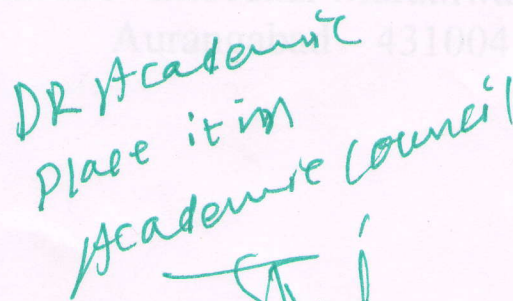 Aurangabad - 431004
DR Academic
Place it in
Academic Council